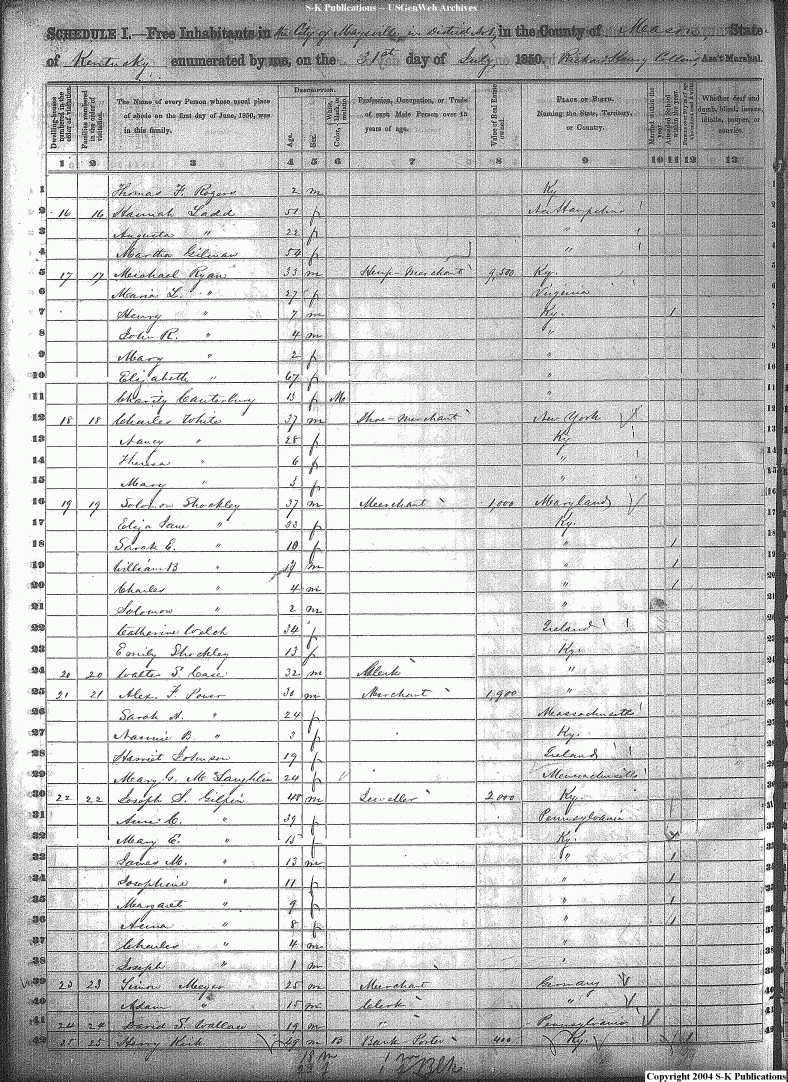 S-K Publications – USGenWeb Archives
SCHEDULE I.—Free Inhabitants in the City of Maysville, in District No. 1, in the County of Mason State
of Kentucky enumerated by me, on the 31st day of July 1850. Richard Henry Collins Ass't Marshal.
Dwelling-houses numbered in the order of visitation. Families numbered in the order of visitation. The Name of every Person whose usual place of abode on the first day of June, 1850, was in this family. DESCRIPTION. Age. Sex. Color Profession, Occupation, or Trade of each Male Person over 15 years of age. Value of Real Estate owned PLACE OF BIRTH. Naming the State, Territory, or Country. Married within the year Attended School within the year Whether deaf and dumb, blind, insane, idiotic, pauper, or convict.
1 2 3 4 5 6 7 8 9 10 11 12 13
1 Thomas F. Rogers 2 m Ky
2 16 16 Hannah Ladd 51 f New Hampshire
3 Augusta " 22 f "
4 Martha Gilman 54 f "
5 17 17 Michael Ryan 33 m Hemp-Merchant 9,500 Ky.
6 Maria L. " 27 f Virginia
7 Henry " 7 m Ky. 1
8 John R. " 4 m "
9 Mary " 2 f "
10 Elizabeth " 67 f "
11 Charity Canterbury 13 f M "
12 18 18 Charles White 37 m Shoe-Merchant New York
13 Nancy " 28 f Ky
14 Theresa " 6 f "
15 Mary " 3 f "
16 19 19 Solomon Shockley 37 m Merchant 1,000 Maryland
17 Eliza Jane " 33 f Ky.
18 Sarah E. " 10 f " 1
19 William B " m " 1
20 Charles " 4 m " 1
21 Solomon " 2 m "
22 Catherine Welch 34 f Ireland
23 Emily Shockley 13 f Ky.
24 20 20 Walter S. Case 32 m Clerk "
25 21 21 Alex. F. Power 30 m Merchant 1,900 "
26 Sarah A. " 24 f Massachusetts
27 Nannie B. " 3 f Ky.
28 Harriet Johnson 19 f Ireland
29 Mary C. McLaughlin 24 f Massachusetts
30 22 22 Joseph S. Gilpin 48 m Jeweller 2,000 Ky.
31 Ann C. " 39 f Pennsylvania
32 Mary E. " 15 f Ky.
33 James M. " 13 m " 1
34 Josephine " 11 f " 1
35 Margaret " 9 f " 1
36 Anna " 8 f " 1
37 Charles " 4 m "
38 Joseph " 1 m "
39 23 23 Simon Meyer 25 m Merchant Germany
40 Adam " 15 m Clerk "
41 24 24 David S. Wallace 19 m " Pennsylvania
42 25 25 Henry Kirk 49 m B Bank-Porter 400 Ky. 1
18 m 1 m
2 Blk
Copyright 2004 S-K Publications